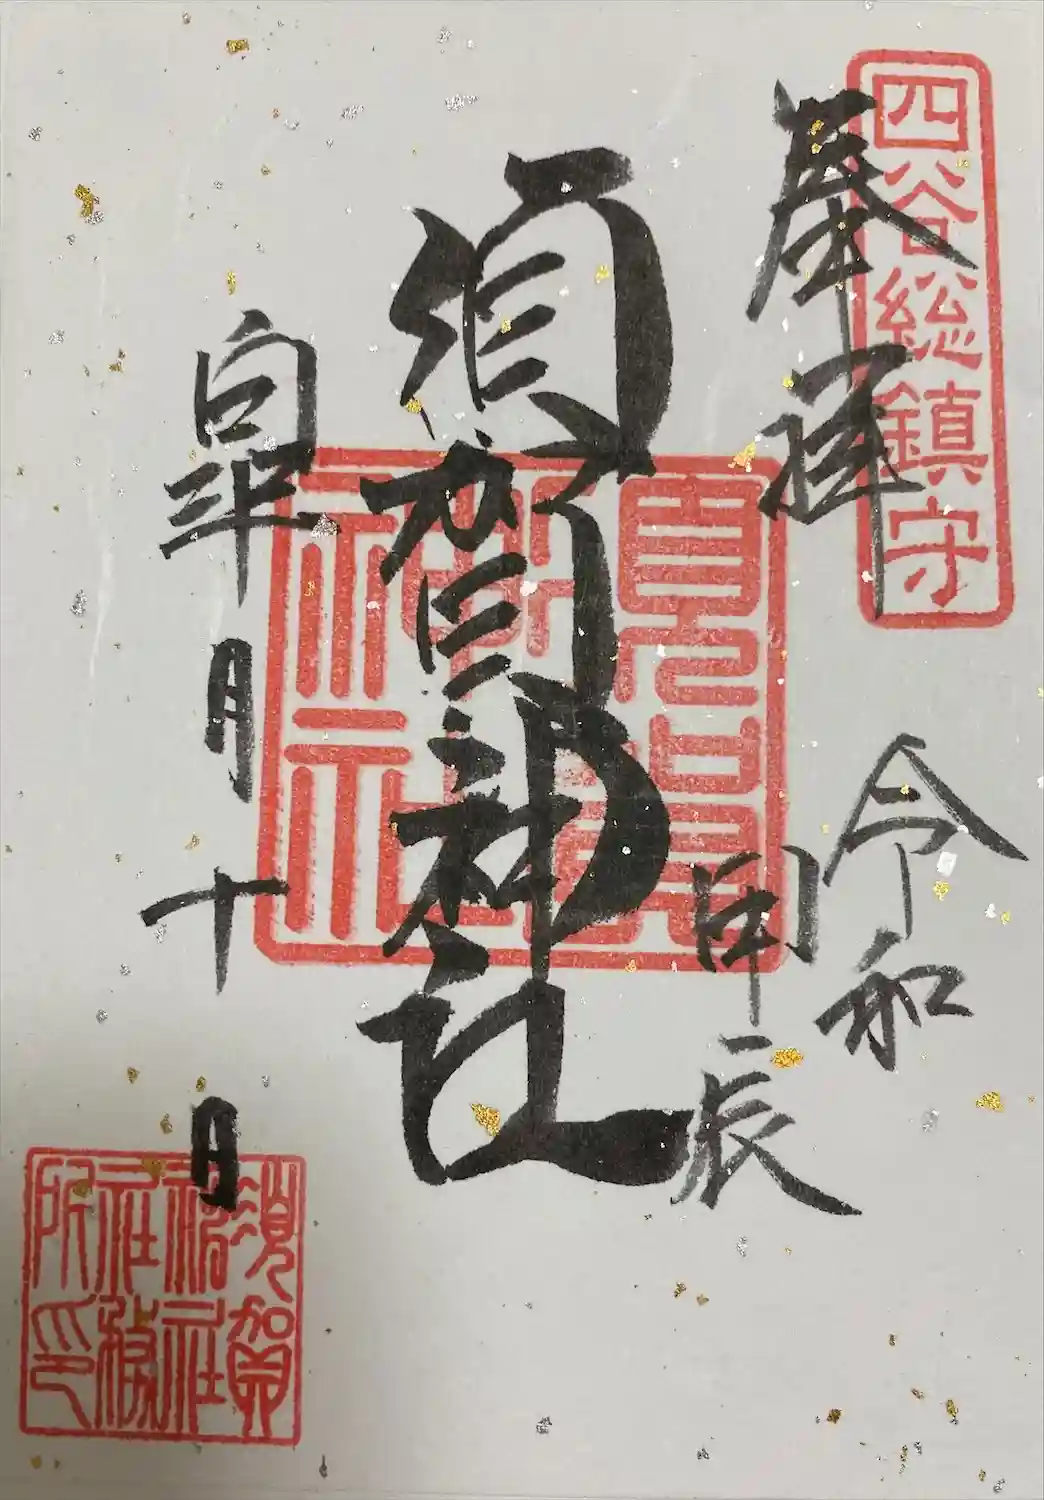 四谷総鎮守
奉拝
令和
甲辰
須賀神社
年月十日
須賀神社社務所印